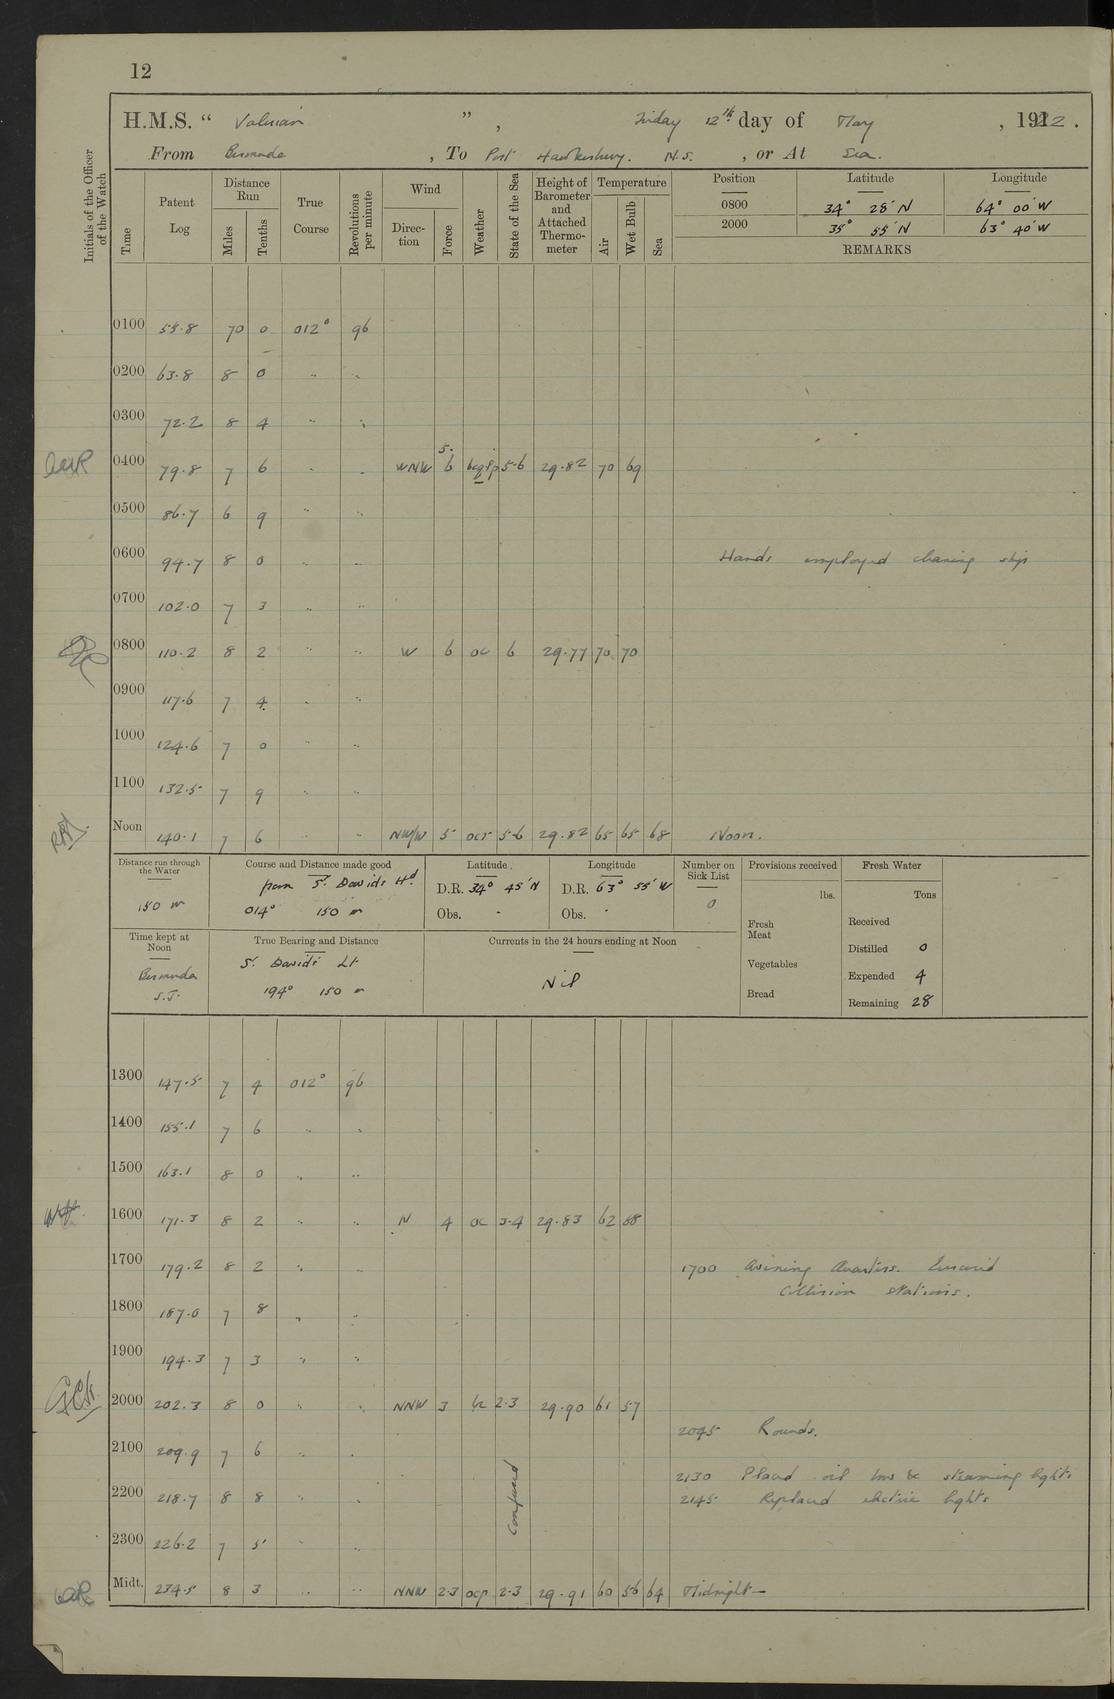 12
H.M.S. " Valerian ", Friday 12th day of May, 1922.
From Bermuda, To Port Hawkesbury. N.S., or At Sea.
Initials of the Officer of the Watch
Time Patent Log Distance Run Miles Tenths True Course Revolutions per minute Wind Direction Force Weather State of the Sea Height of Barometer and Attached Thermometer Temperature Air Wet Bulb Sea
Position Latitude Longitude
0800 34° 28' N 64° 00' W
2000 35° 55' N 63° 40' W
REMARKS
0100 55.8 70 0 012° 96
0200 63.8 8 0 " "
0300 72.2 8 4 " "
0400 79.8 7 6 " " WNW 5. 6 bcqp 5-6 29.82 70 69
0500 86.7 6 9 " "
0600 94.7 8 0 " " Hands employed cleaning ship
0700 102.0 7 3 " "
0800 110.2 8 2 " " W 6 oc 6 29.77 70 70
0900 117.6 7 4 " "
1000 124.6 7 0 " "
1100 132.5 7 9 " "
Noon 140.1 7 6 " " NW/W 5 ocr 5-6 29.82 65 65 68 Noon.
Distance run through the Water
150 m
Course and Distance made good
from St. Davids Hd.
014° 150 m
Latitude
D.R. 34° 45' N
Obs. -
Longitude
D.R. 63° 55' W
Obs. -
Number on Sick List
0
Provisions received
lbs.
Fresh Meat
Vegetables
Bread
Fresh Water
Tons
Received
Distilled 0
Expended 4
Remaining 28
Time kept at Noon
Bermuda S.T.
True Bearing and Distance
St. Davids Lt
194° 150 m
Currents in the 24 hours ending at Noon
Nil
1300 147.5 7 4 012° 96
1400 155.1 7 6 " "
1500 163.1 8 0 " "
1600 171.3 8 2 " " N 4 oc 3-4 29.83 62 58
1700 179.2 8 2 " " 1700 Evening Quarters. Exercised
Collision stations.
1800 187.0 7 8 " "
1900 194.3 7 3 " "
2000 202.3 8 0 " " NNW 3 bc 2.3 29.90 61 57
2045 Rounds.
2100 209.9 7 6 " "
2130 Placed oil bow & steaming lights
2200 218.7 8 8 " " confused 2145 Replaced electric lights
2300 226.2 7 5 " "
Midt. 234.5 8 3 " " NNW 2.3 ocp 2.3 29.91 60 56 64 Midnight—